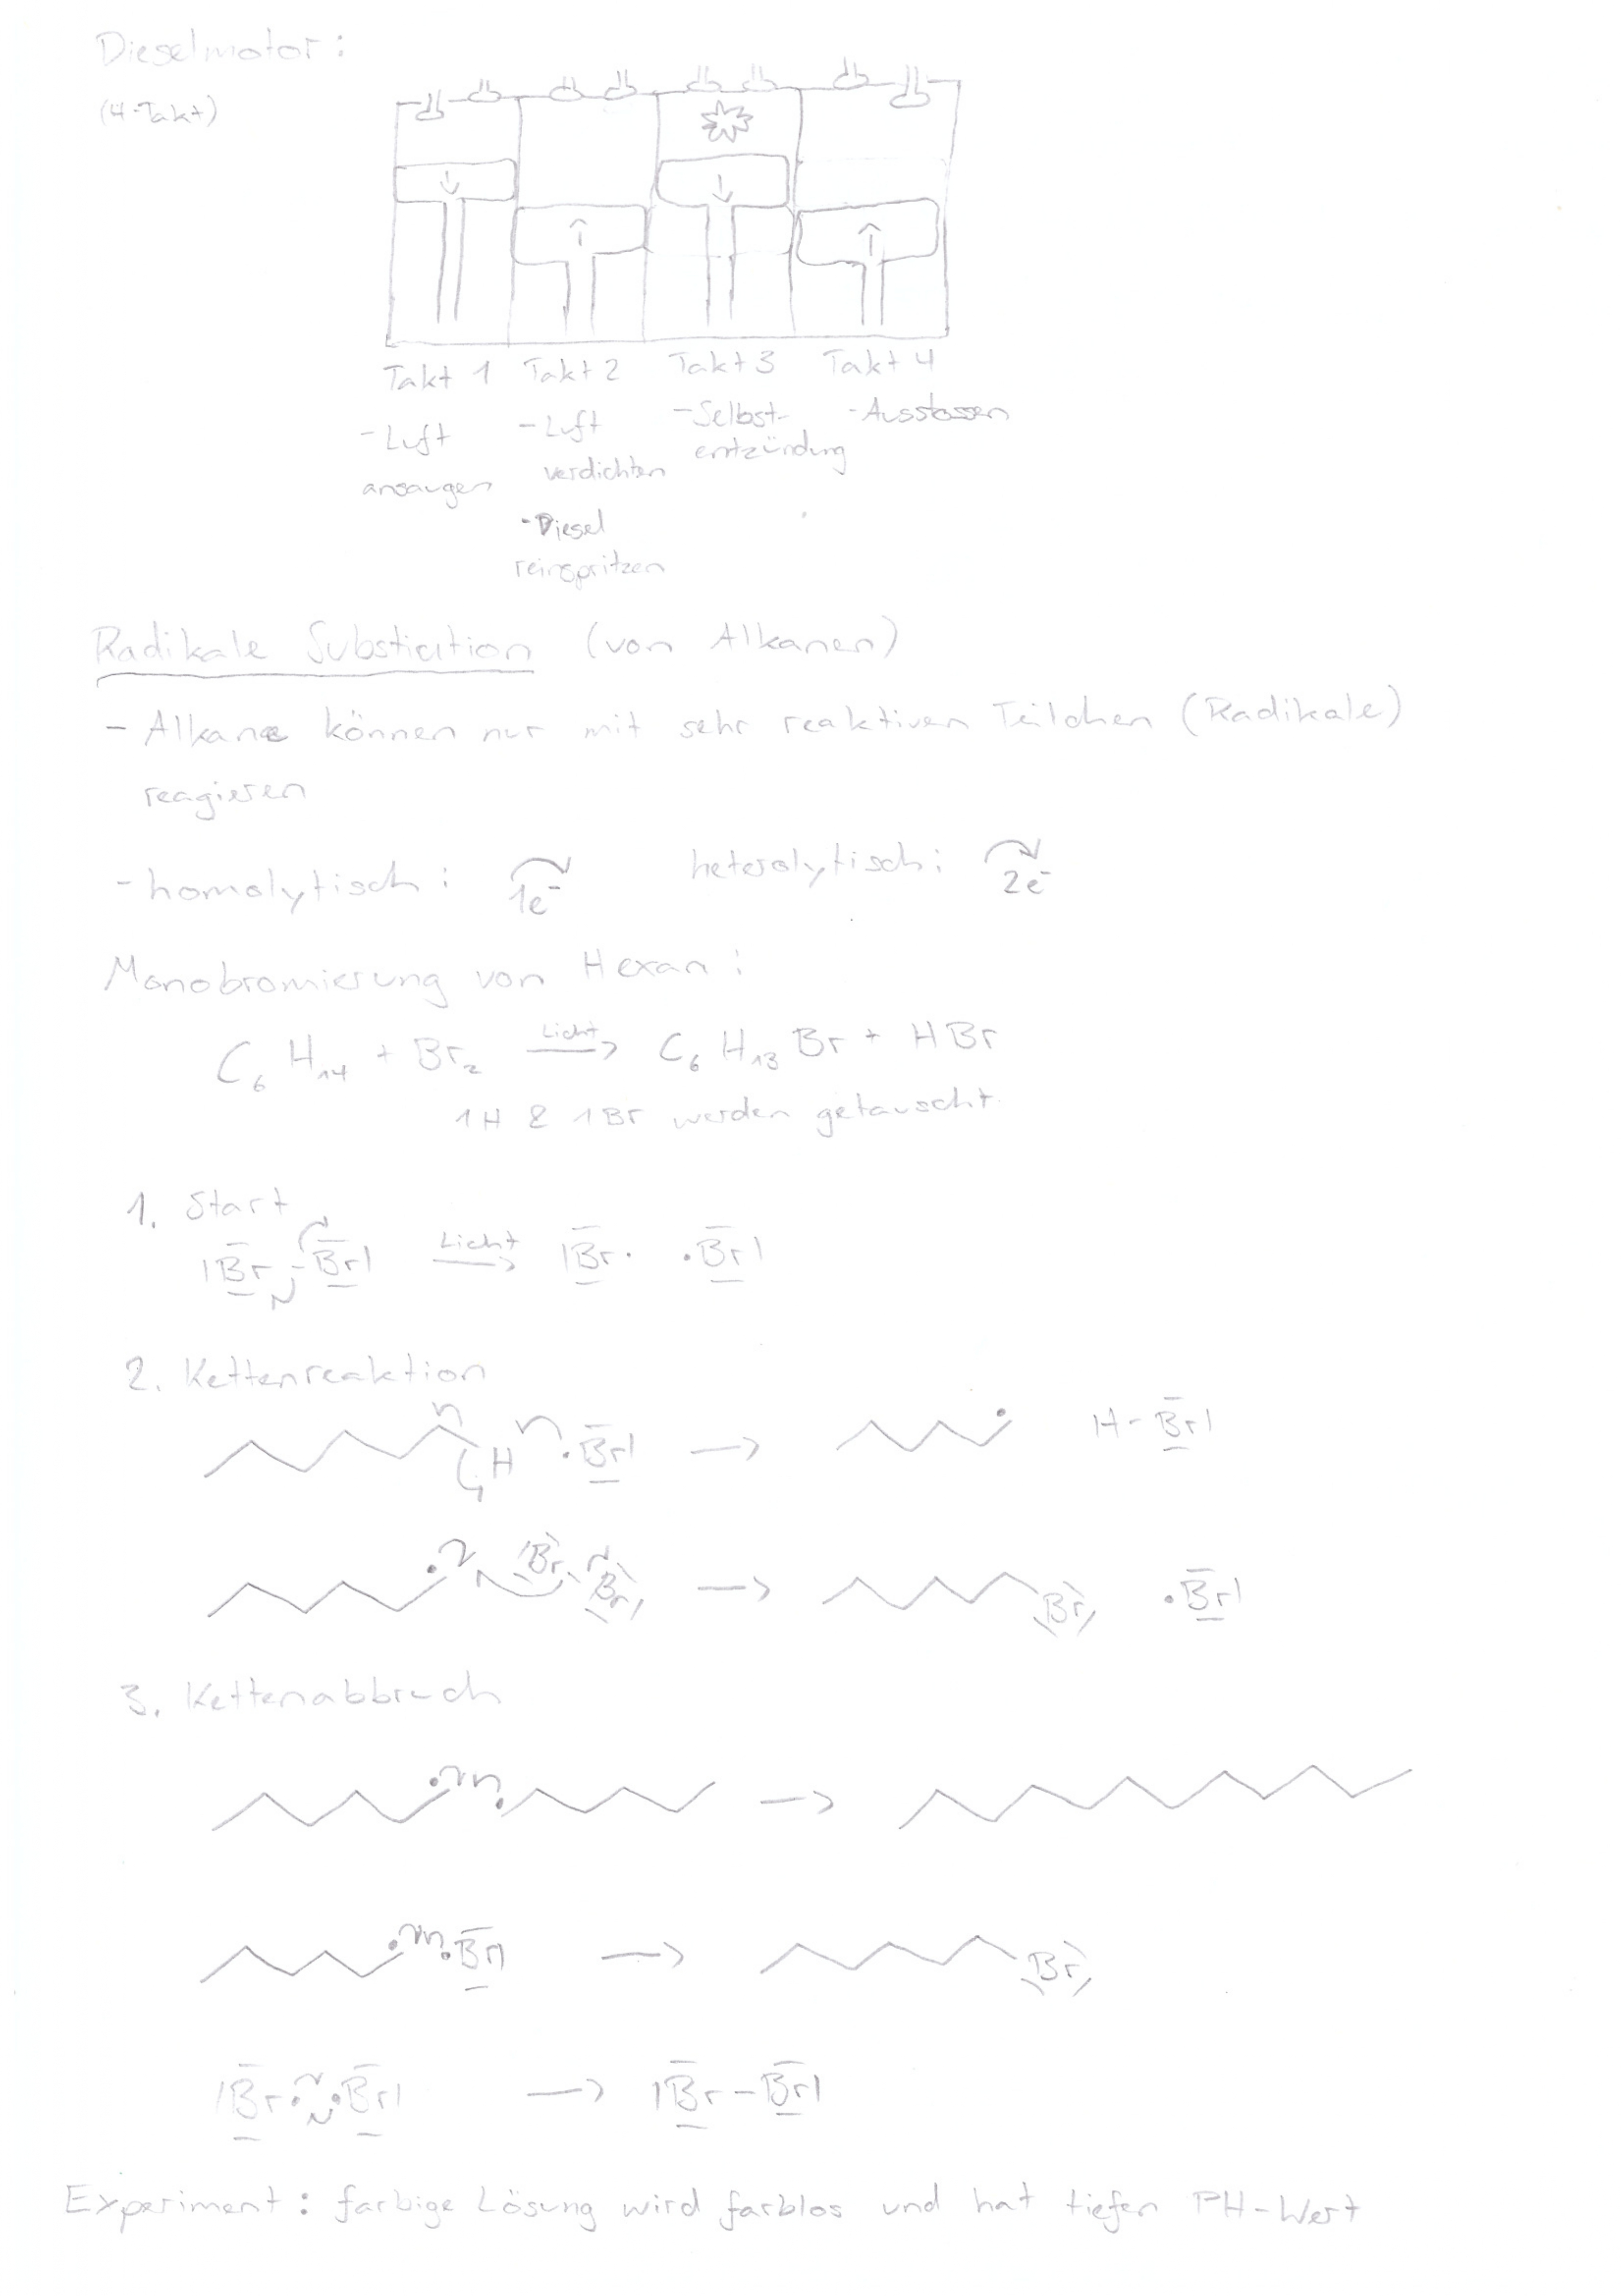 Dieselmotor:
(4-Takt)
Takt 1 Takt 2 Takt 3 Takt 4
-Luft ansaugen
-Luft verdichten
-Diesel reinspritzen
-Selbst-
entzündung
-Ausstossen
Radikale Substiution (von Alkanen)
- Alkane können nur mit sehr reaktiven Teilchen (Radikale)
reagieren
- homolytisch: 1e⁻ heterolytisch: 2e⁻
Monobromierung von Hexan:
C₆H₁₄ + Br₂ Licht → C₆H₁₃Br + HBr
1H & 1Br werden getauscht.
1. Start
|Br - Br| Licht → |Br· ·Br|
2. Kettenreaktion
H ·Br| → · H-Br|
· Br-Br| → Br ·Br|
3. Kettenabbruch
· · →
· ·Br| → Br
|Br· ·Br| → |Br-Br|
Experiment: farbige Lösung wird farblos und hat tiefen PH-Wert